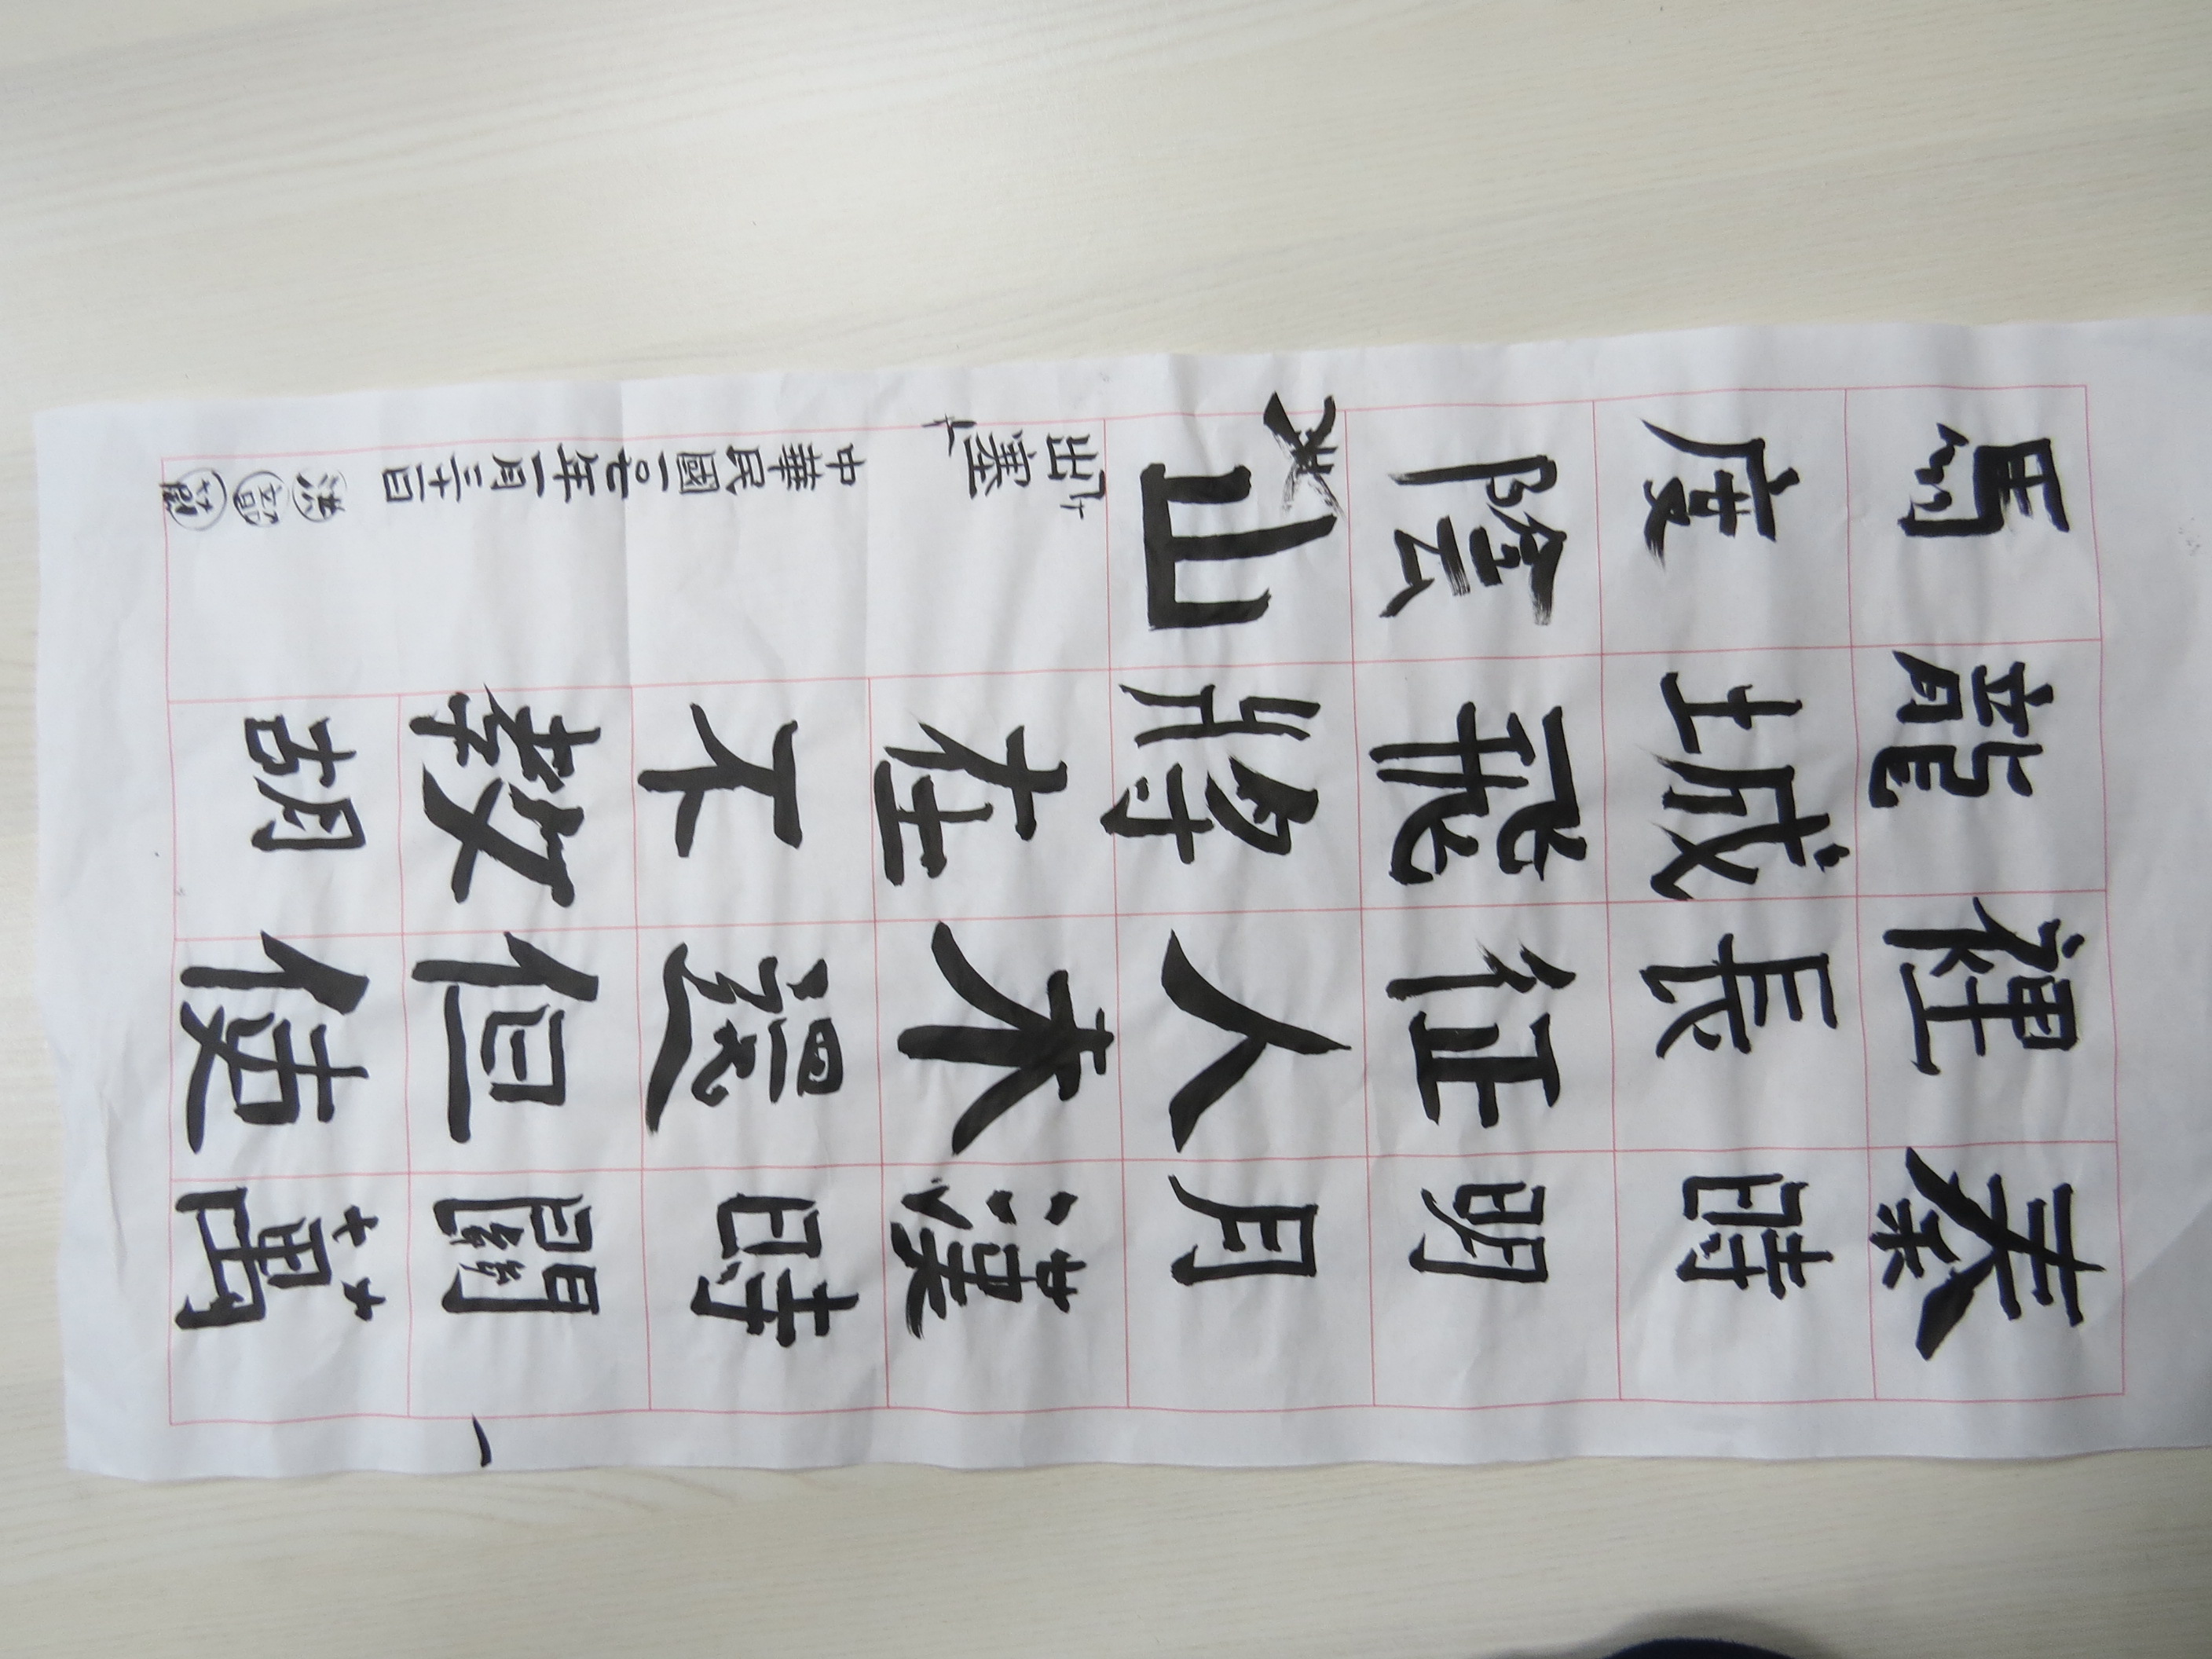 秦時明月漢時關萬
裡長征人未還但使
龍城飛將在不教胡
馬度陰山
「出塞」
中華民國一〇七年一月三十一日
洪